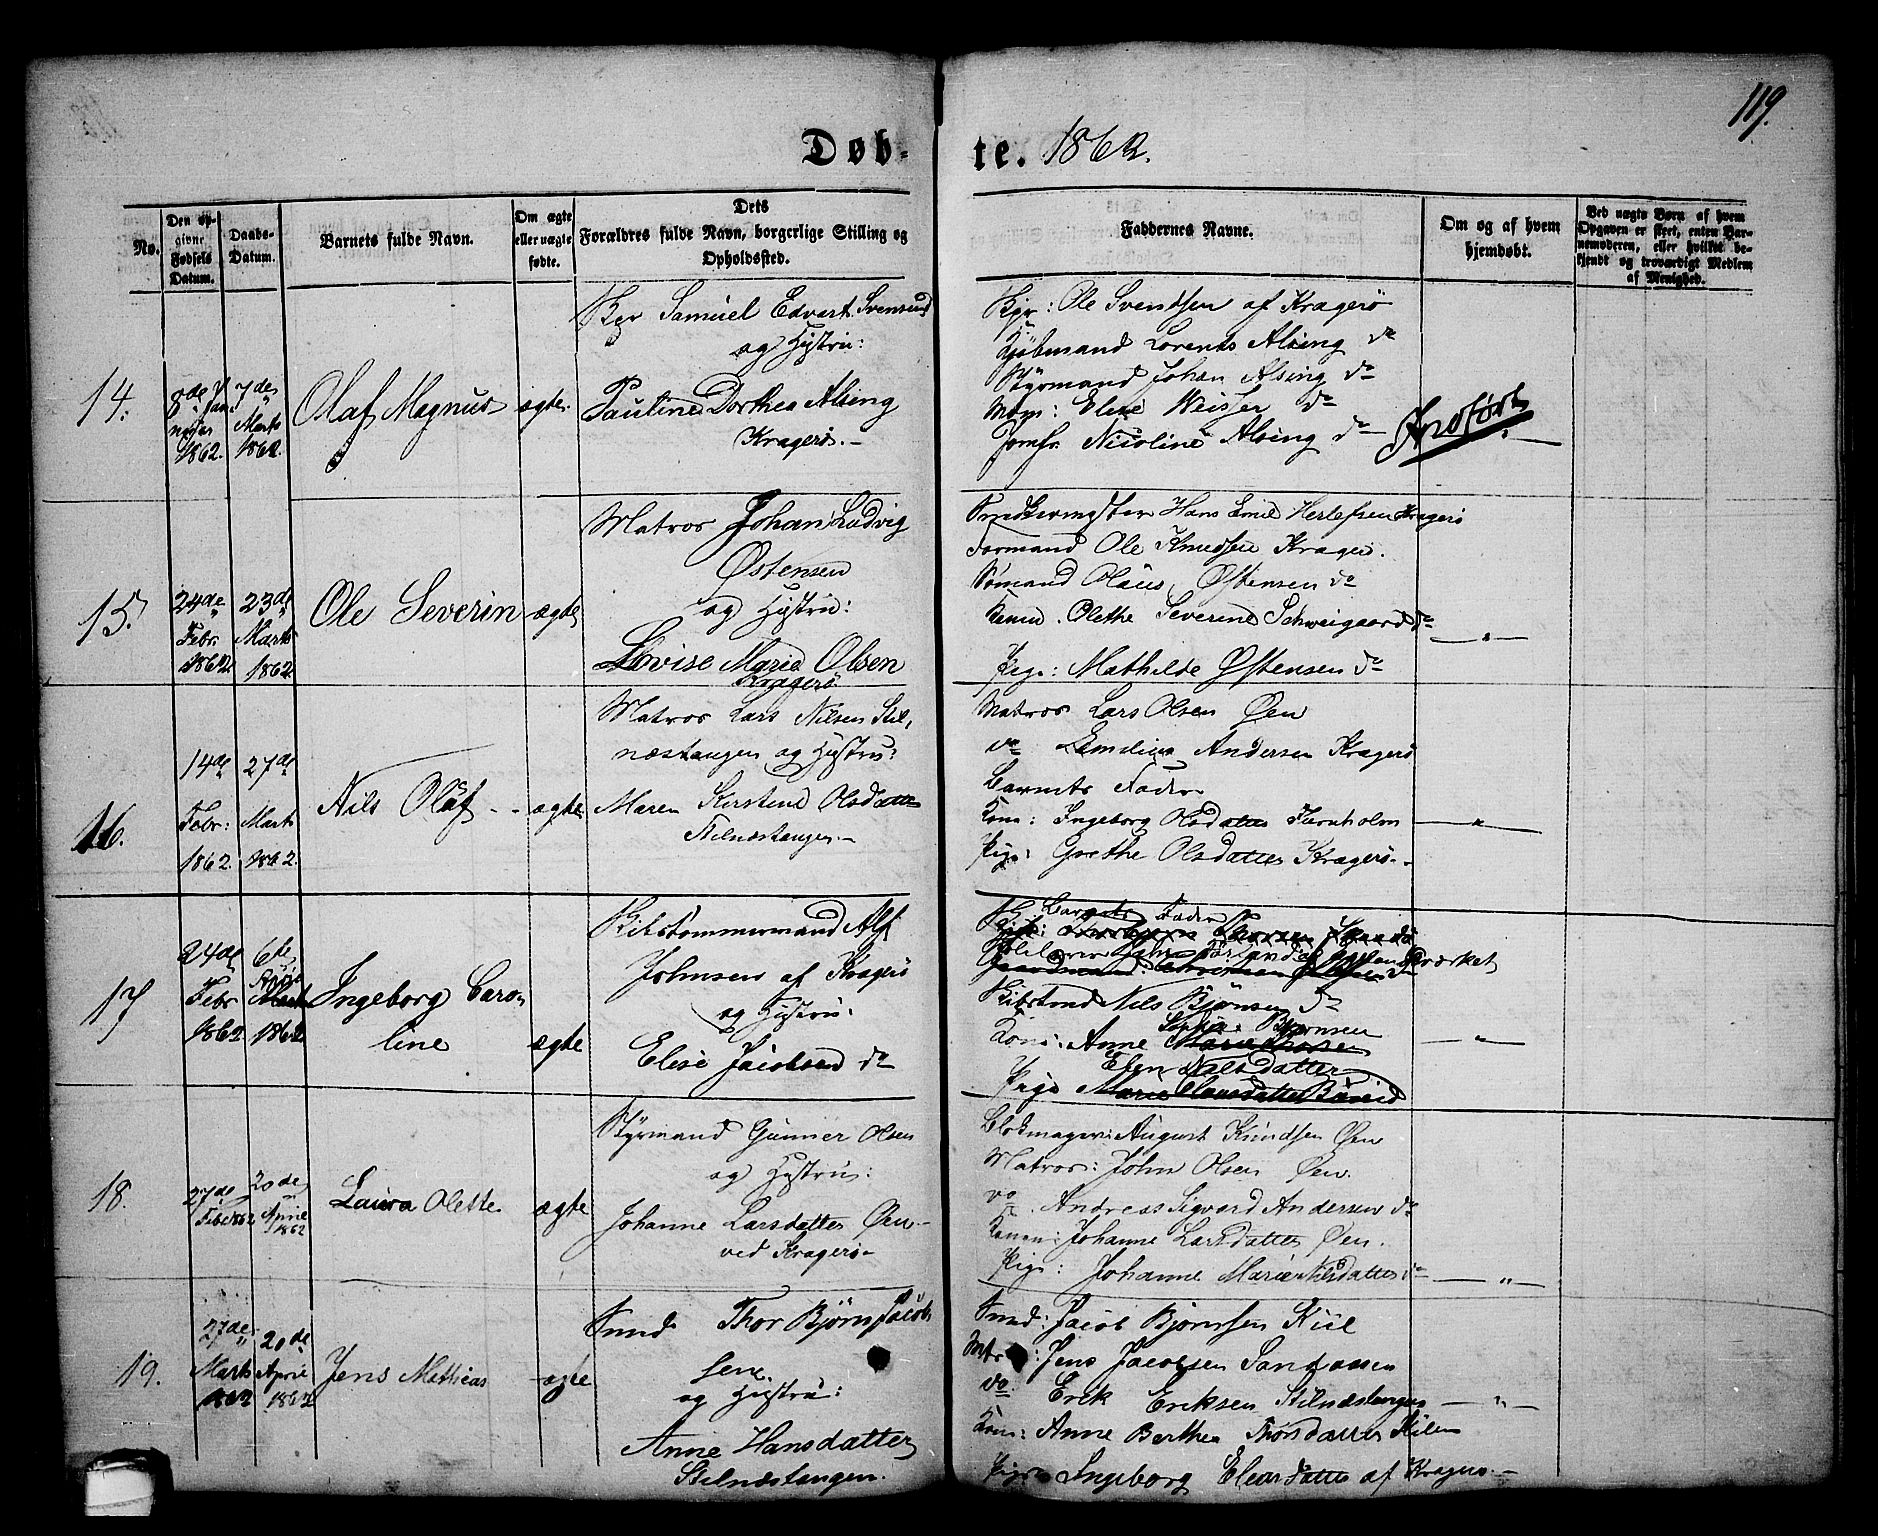 119.
Døb-te. 1862.
No.
Den op-
givne
Fødsels
Datum.
Daabs-
Datum.
Barnets fulde Navn.
Om ægte
eller uægte
fødte.
Dets
Forældres fulde Navn, borgerlige Stilling og
Opholdssted.
Faddernes Navne.
Om og af hvem
hjemdøbt.
Ved uægte Børn af hvem
Opgaven er skeet, enten Bar-
nemoderen, eller hvilket be-
kjendt og troværdigt Medlem
af Menighed.
14.
8de Jan
1862.
7de
Marts
1862.
Olaf Magnus
ægte
Samuel Edvart Svensen
og Hustru:
Pauline Dorthea Alsing
Kragerö.-
Ole Svendsen af Kragerö
Kjöbmand Lorents Alsing do
Styrmand Johan Alsing do
Mdm: Elene Weisser do
Jomfr Nicoline Alsing do
Indført
15.
24de
Febr
1862.
23de
Marts
1862.
Ole Severin
ægte
Matros Johan Ludvig
Østensen
og Hustru:
Lovise Marie Olsen
Kragerö
Hans Emil Herlofsen Kragerö
Formand Ole Knudsen Kragerö.
Sömand Olaus Østensen do
Olethe Severine Schweigaard do
Pige: Mathilde Østensen do
— " —
16.
14de
Febr:
1862.
27de
Marts
1862.
Nils Olaf
ægte
Matros Lars Nilsen Stil-
næstangen og Hustru:
Maren Kirstine Olsdatter
Stilnæstangen.-
Matros Lars Olsen Øen
do Andersen Kragerö
Barnets Fader
Kone: Ingeborg Olsdatter
Pige: Grethe Olsdatter Kragerö.-
— " —
17
24de
Febr
1862
6te
April
1862
Ingeborg Caro-
line
ægte
Skibstömmermand Alf
Johnsen af Kragerö
og Hustru:
Elise Jacobsen do
Barnets Fader
Skibstmd Nils Bjönsen do
Sophie Bjørnsen
Kone: Anne
Elen Nilsdatter
Pige
— " —
18.
27de
Febr 1862
20de
April
1862
Laura Olette
ægte
Styrmand Gunner Olsen
og Hustru:
Johanne Larsdatter Øen
ved Kragerö-
Blokmager: August Knudsen Øen
Matros: John Olsen Øen.
do. Andreas Sigvard Andersen do
Konen: Johanne Larsdatter Øen.
Pige: Johanne Marie Nilsdatter do
— " —
19.
27de
Marts
1862
20de
April
1862
Jens Mathias
ægte
Smed Thor Bjørn Jacob-
sen
og Hustru:
Anne Hansdatter
Stilnæstangen.
Smed: Jacob Bjørnsen Kiil
Jens Jacobsen Sandaasen
do. Erik Eriksen Stilnæstangen
Kone: Anne Berthea Thorsdatter Kilen
Pige Ingeborg af Kragerö.-
— " —